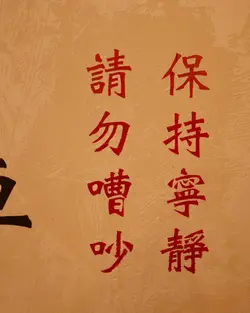 保持寧靜
請勿嘈吵